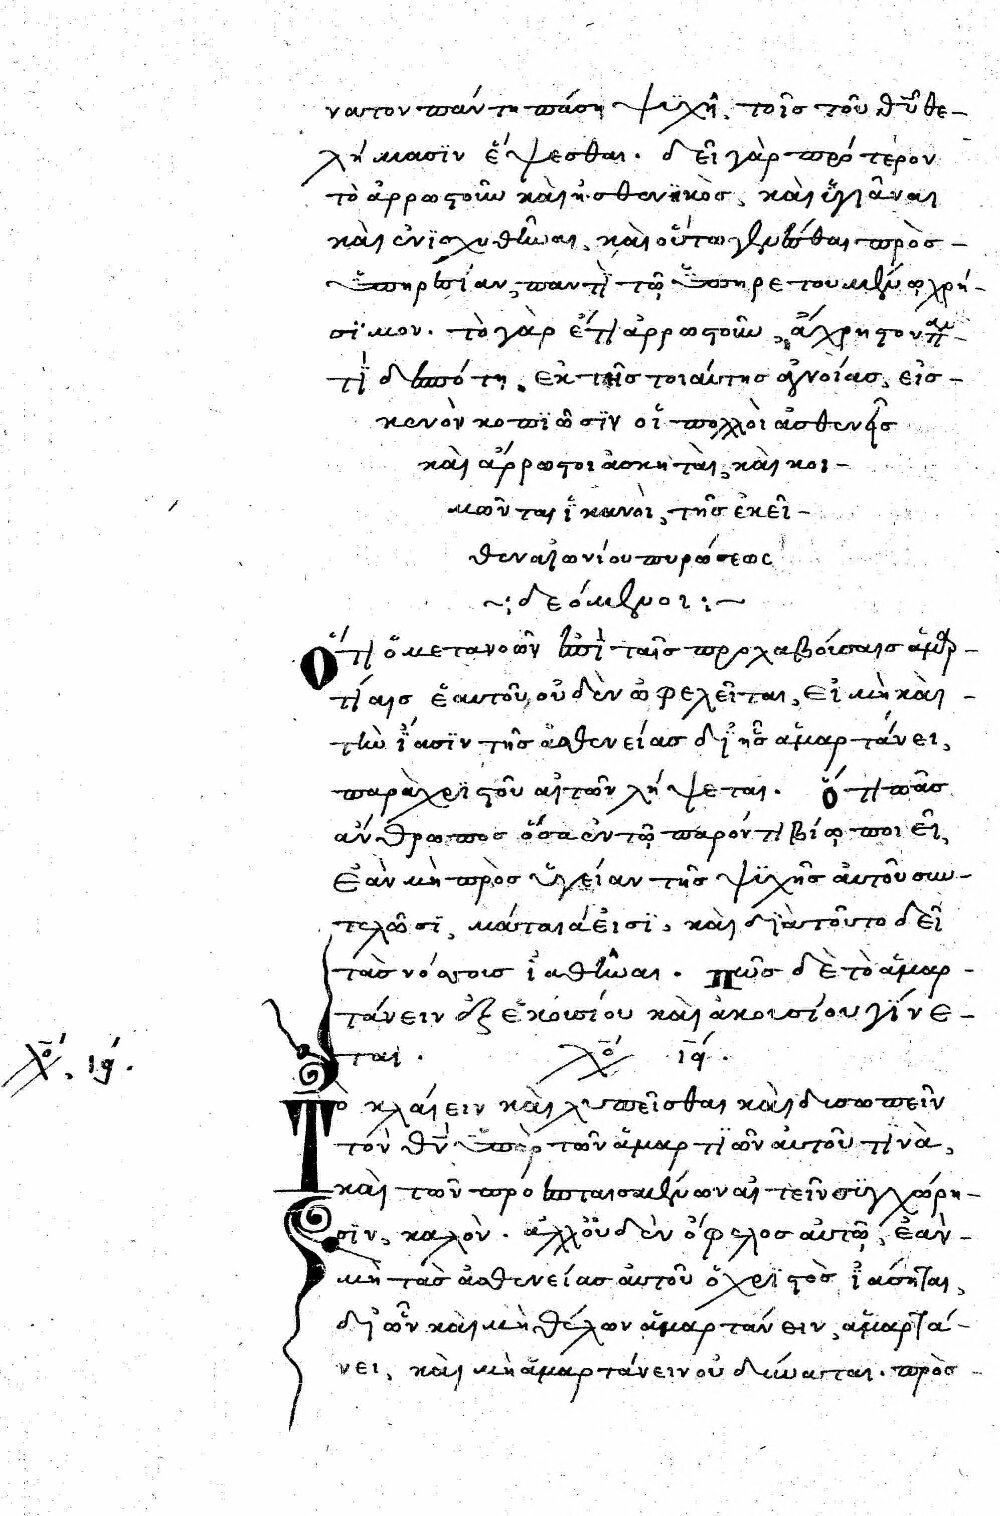 νατον πάντη πάση ψϋχῆ, τοῖς τοῦ θῡ θε-
λήμασϊν ἕψεσθαι. δεῖ γὰρ πρότερον
τὸ ἀρρωστοῦν καὶ ἠσθενηκὸς, καὶ ὑγιᾶναι
καὶ ἐνϊσχυθῆναι, καὶ οὕτω γενέσθαι πρὸς-
ὑπηρεσίαν, παντὶ τῷ ὑπηρετουμένῳ χρή-
σϊμον. τὸ γὰρ ἔτι ἀρρωστοῦν, ἄχρηστον παν-
τϊ δεσπότη. ἐκ τῆς τοιαύτης ἀγνοίας, εἰς-
κενὸν κοπϊῶσϊν οἱ πολλοὶ ἀσθενεῖς
καὶ ἄρρωστοι ἀσκηταὶ, καὶ κοι-
μῶνται ἱκανοὶ, τῆς ἐκεῖ-
θεν αἰωνίου πυρώσεως
~: δεόμενοι :~
Ὅτι ὁ μετανοῶν ἐπὶ ταῖς προλαβούσαις ἁμαρ-
τίαις ἑαυτοῦ, οὐδὲν ὠφελεῖται, εἰ μὴ καὶ-
τὴν ἴασϊν τῆς ἀσθενείας δι' ἧς ἁμαρτάνει,
παρὰ χρϊστοῦ αἰτῶν λήψεται. ὅτι πᾶς
ἄνθρωπος ὅσα ἐν τῷ παρόντι βίῳ ποιεῖ,
ἐὰν μὴ πρὸς ὑγείαν τῆς ψϋχῆς αὐτοῦ συν-
τελῶσϊ, μάταιά εἰσϊ, καὶ δϊὰ τοῦτο δεῖ
τὰς νόσους ἰαθῆναι. πῶς δὲ τὸ ἁμαρ-
τάνειν ἐξ ἑκουσίου καὶ ἀκουσίου γίνε-
ται. λό ιϛ.
λό. ιϛ.
Τὸ κλαίειν καὶ λυπεῖσθαι καὶ δυσωπεῖν
τὸν θν̄ ὑπὲρ τῶν ἁμαρτιῶν αὐτοῦ τινὰ,
καὶ τῶν προεπταισμένων αἰτεῖν συγχώρη-
σϊν, καλὸν. ἀλλ' οὐδὲν ὄφελος αὐτῷ, ἐὰν-
μὴ τὰς ἀσθενείας αὐτοῦ ὁ χρϊστὸς ἰάσηται,
δι' ὧν καὶ μὴ θέλων ἁμαρτάνειν, ἁμαρτά-
νει, καὶ μὴ ἁμαρτάνειν οὐ δύναται. πρὸς-